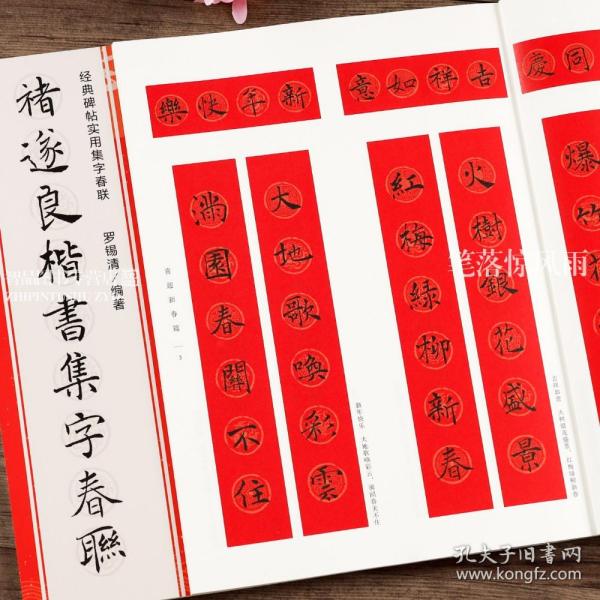 经典碑帖实用集字春联
褚遂良楷书集字春聯
罗锡清 编著
樂快年新
意如祥吉
慶同
大地歌喚彩雲
滿園春關不住
火樹銀花盛景
紅梅綠柳新春
爆竹
喜迎新春篇
3
新年快乐 大地歌唤彩云,满园春关不住
吉祥如意 火树银花盛景,红梅绿柳新春
笔落惊风雨
ZHIPINTUSHU ZY
孔夫子旧書网
www.kongfz.com